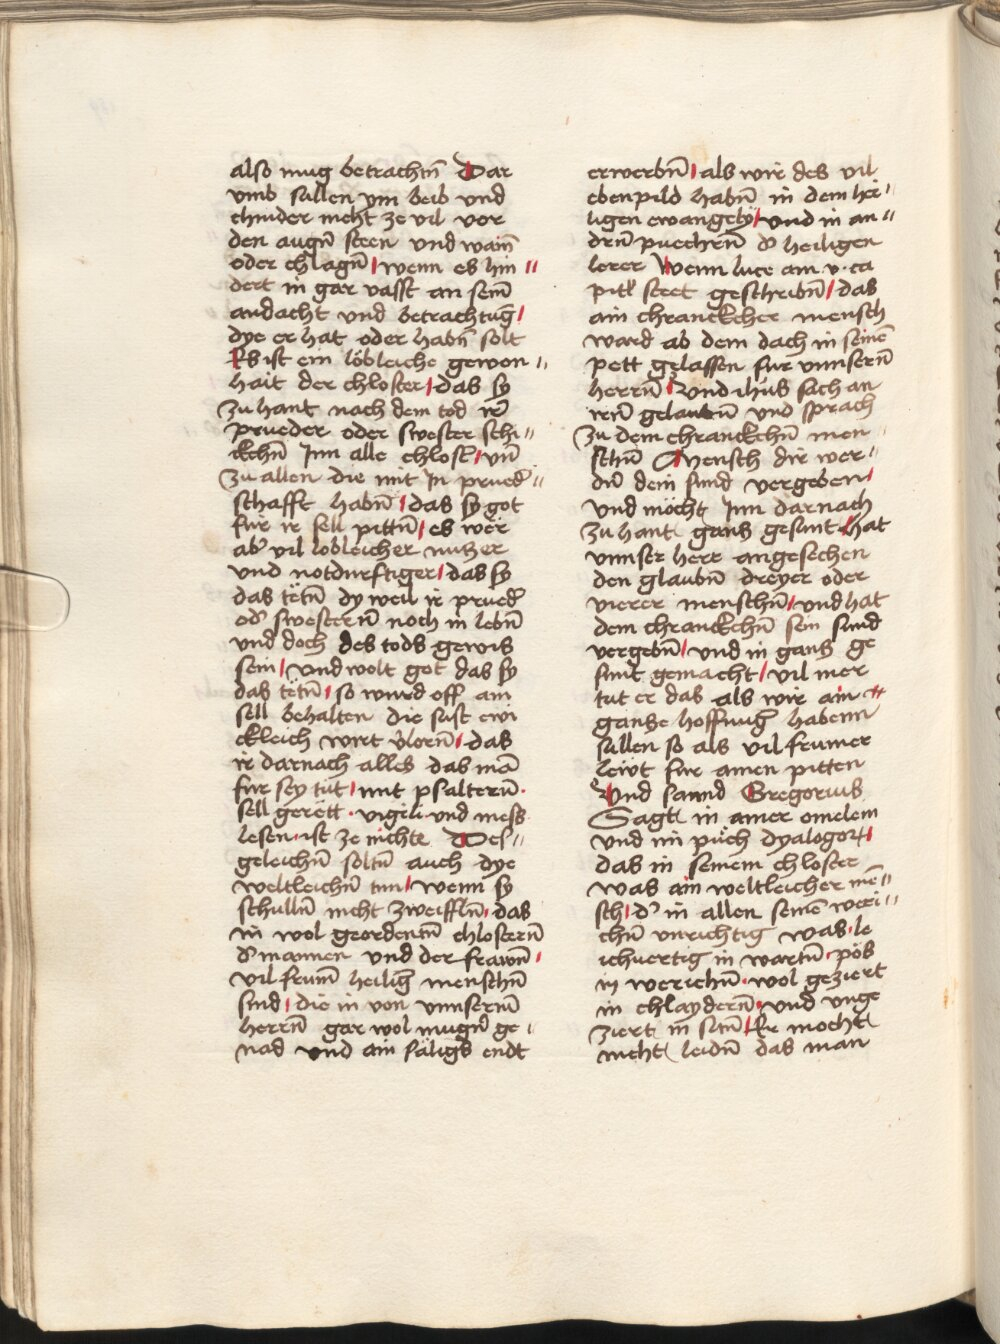 also mug betrachtn̄ Dar
vmb sullen ym beib vnd
chinder nicht ze vil vor
den augn̄ steen vnd wain̄
oder chlagn̄ / wenn es hin //
dert in gar vasst an sein̄
andacht vnd betrachtūg /
dye er hat oder habn̄ solt
Es ist ein löbleiche gewon //
hait der chloster / das sy
zu hant nach dem tod irē
prueder oder swester schi //
ckchn̄ Inn alle chlost̄ / vn̄
zu allen die mit In prued̄ //
schafft habn̄ / das sy got
für ir sell pittn̄ / es wer
ab̄ vil lobleicher nutzer
vnd notdurftiger / das sy
das tetn̄ dy weil ir prued̄
od̄ swestern̄ noch in lebn̄
vnd doch des tods gewis
sein / vnd wolt got das sy
das tetn̄ / so wurd offt ain
sell behalten die sust ewi
ckleich wirt v̄lorn̄ / das
ir darnach alles das mā
fur sey tut / mit psaltern̄ .
sell gerett . vigili vnd mess
lesen . ist ze nichte Des //
geleichn̄ soltn̄ auch dye
weltleichn̄ tun / wenn sy
schulln̄ nicht zweiffln̄ / das
in wol geordentn̄ chlostern̄
d̄ mannen vnd der frawn̄ /
vil frum̄ heiliḡ menschn̄
sind / die in von vnnsern̄
herrn̄ gar wol mugn̄ ge /
nad vnd ain säligs endt
erwerbn̄ / als wir des vil
ebenpild habn̄ in dem hei //
ligen ewangely / vnd in an //
drn̄ puechern̄ d̄ heiligen
lerer Wenn luce am . v . ca
pitl steet geschribn̄ / das
ain chranckcher mensch
ward ab dem dach in seinē
pett gelassen für vnnsern̄
herrn̄ / Vnd ihūs sach an
irn̄ gelaubn̄ vnd sprach
zu dem chranckchn̄ men //
schn̄ Mensch dir wer //
dn̄ dein sund vergeben /
vnd möcht Inn darnach
zu hant gans gesunt / Hat
vnnser herr angesechen
den glaubn̄ dreyer oder
vierer menschn̄ / vnd hat
dem chranckchn̄ sein sund
vergebn̄ / vnd in gans ge
sunt gemacht / vil mer
tut er das als wir ain //
gantze hoffnūg habenn
sullen so als vil frumer
lewt fur ainen pitten
Vnd sannd Gregorius
Sagt in ainer omelein
vnd im püch dyalogor̄ /
das in seinem chloster
was ain weltleicher mē //
sch / d̄ in allen seinē weri //
chn̄ vnrichtig was / le
ichuertig in wartn̄ . pös
in werichn̄ . wol geziert
in chlaydern̄ / vnd vnge
ziert in sitn̄ / Er mocht
nicht leidn̄ das man